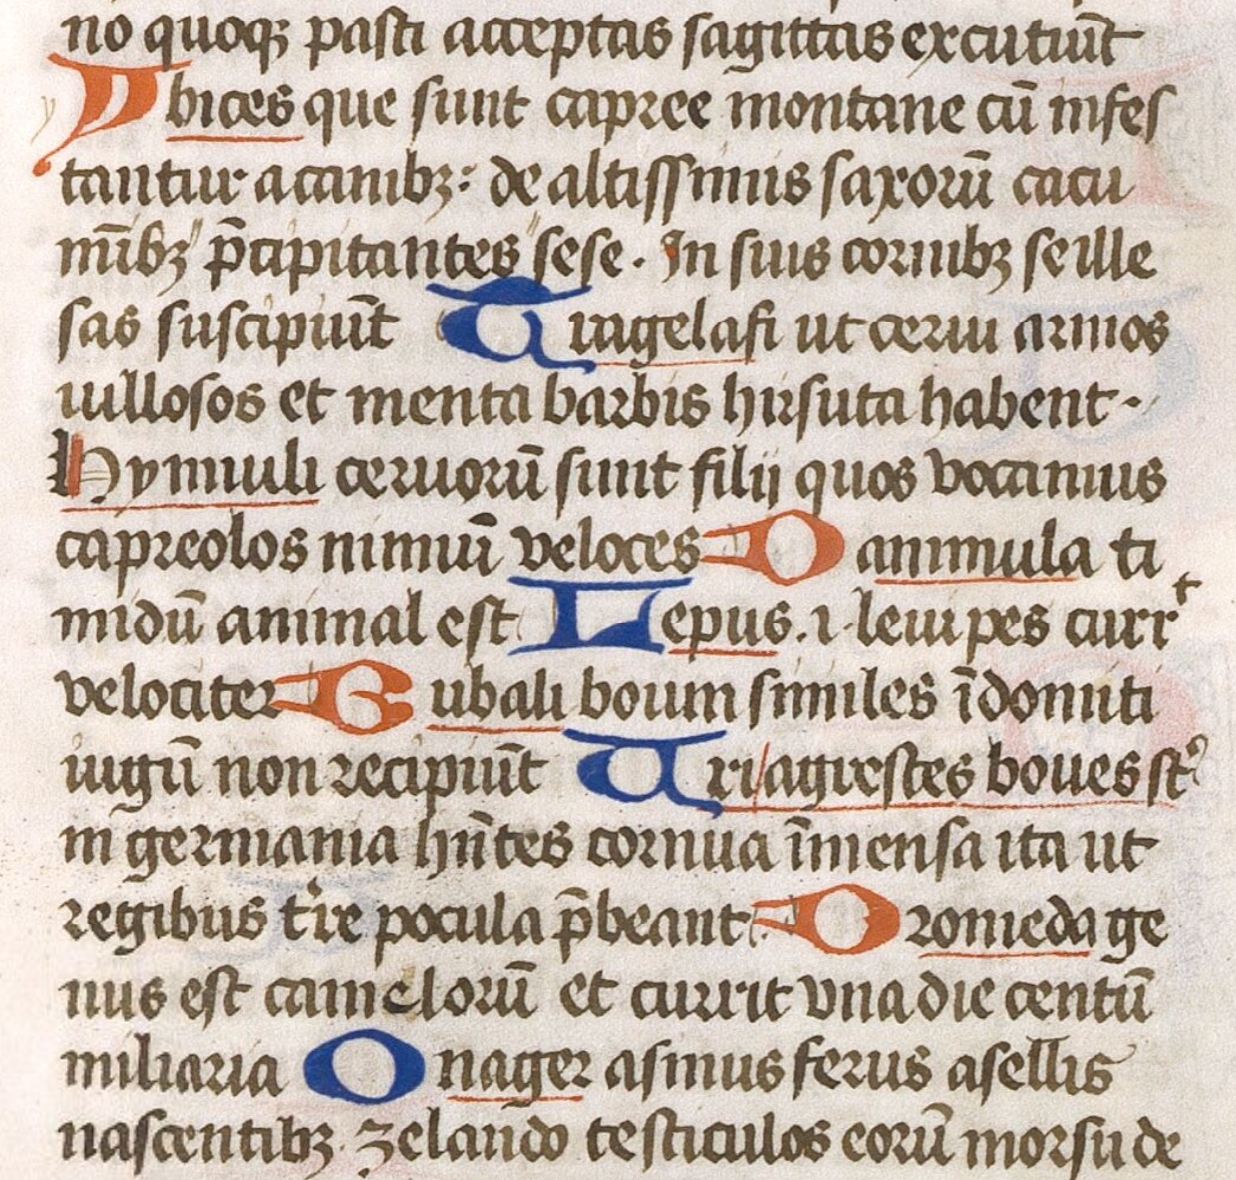 no quoqꝫ pasti acceptas sagittas excutiu̅t
Ybices que sunt capree montane cu̅ infes
tantur a canibꝫ: de altissimis saxoru̅ cacu
mi̅bꝫ p̅cipitantes sese. In suis cornibꝫ se ille
sas suscipiu̅t Tragelafi ut cerui armos
uillosos et menta barbis hirsuta habent.
Hynnuli ceruoru̅ sunt filij quos vocamus
capreolos nimiu̅ veloces Dammula ti
midu̅ animal est Lepus .i. leuipes currᵗ
velociter Bubali boum similes i̅domiti
iugu̅ non recipiu̅t Uri agrestes boues st̅
in germania hn̅tes cornua i̅mensa ita ut
regibus t̅re pocula p̅beant. Dromeda ge
nus est cameloru̅ et currit vna die centu̅
miliaria Onager asinus ferus asellis
nascentibꝫ zelando testiculos eoru̅ morsu de